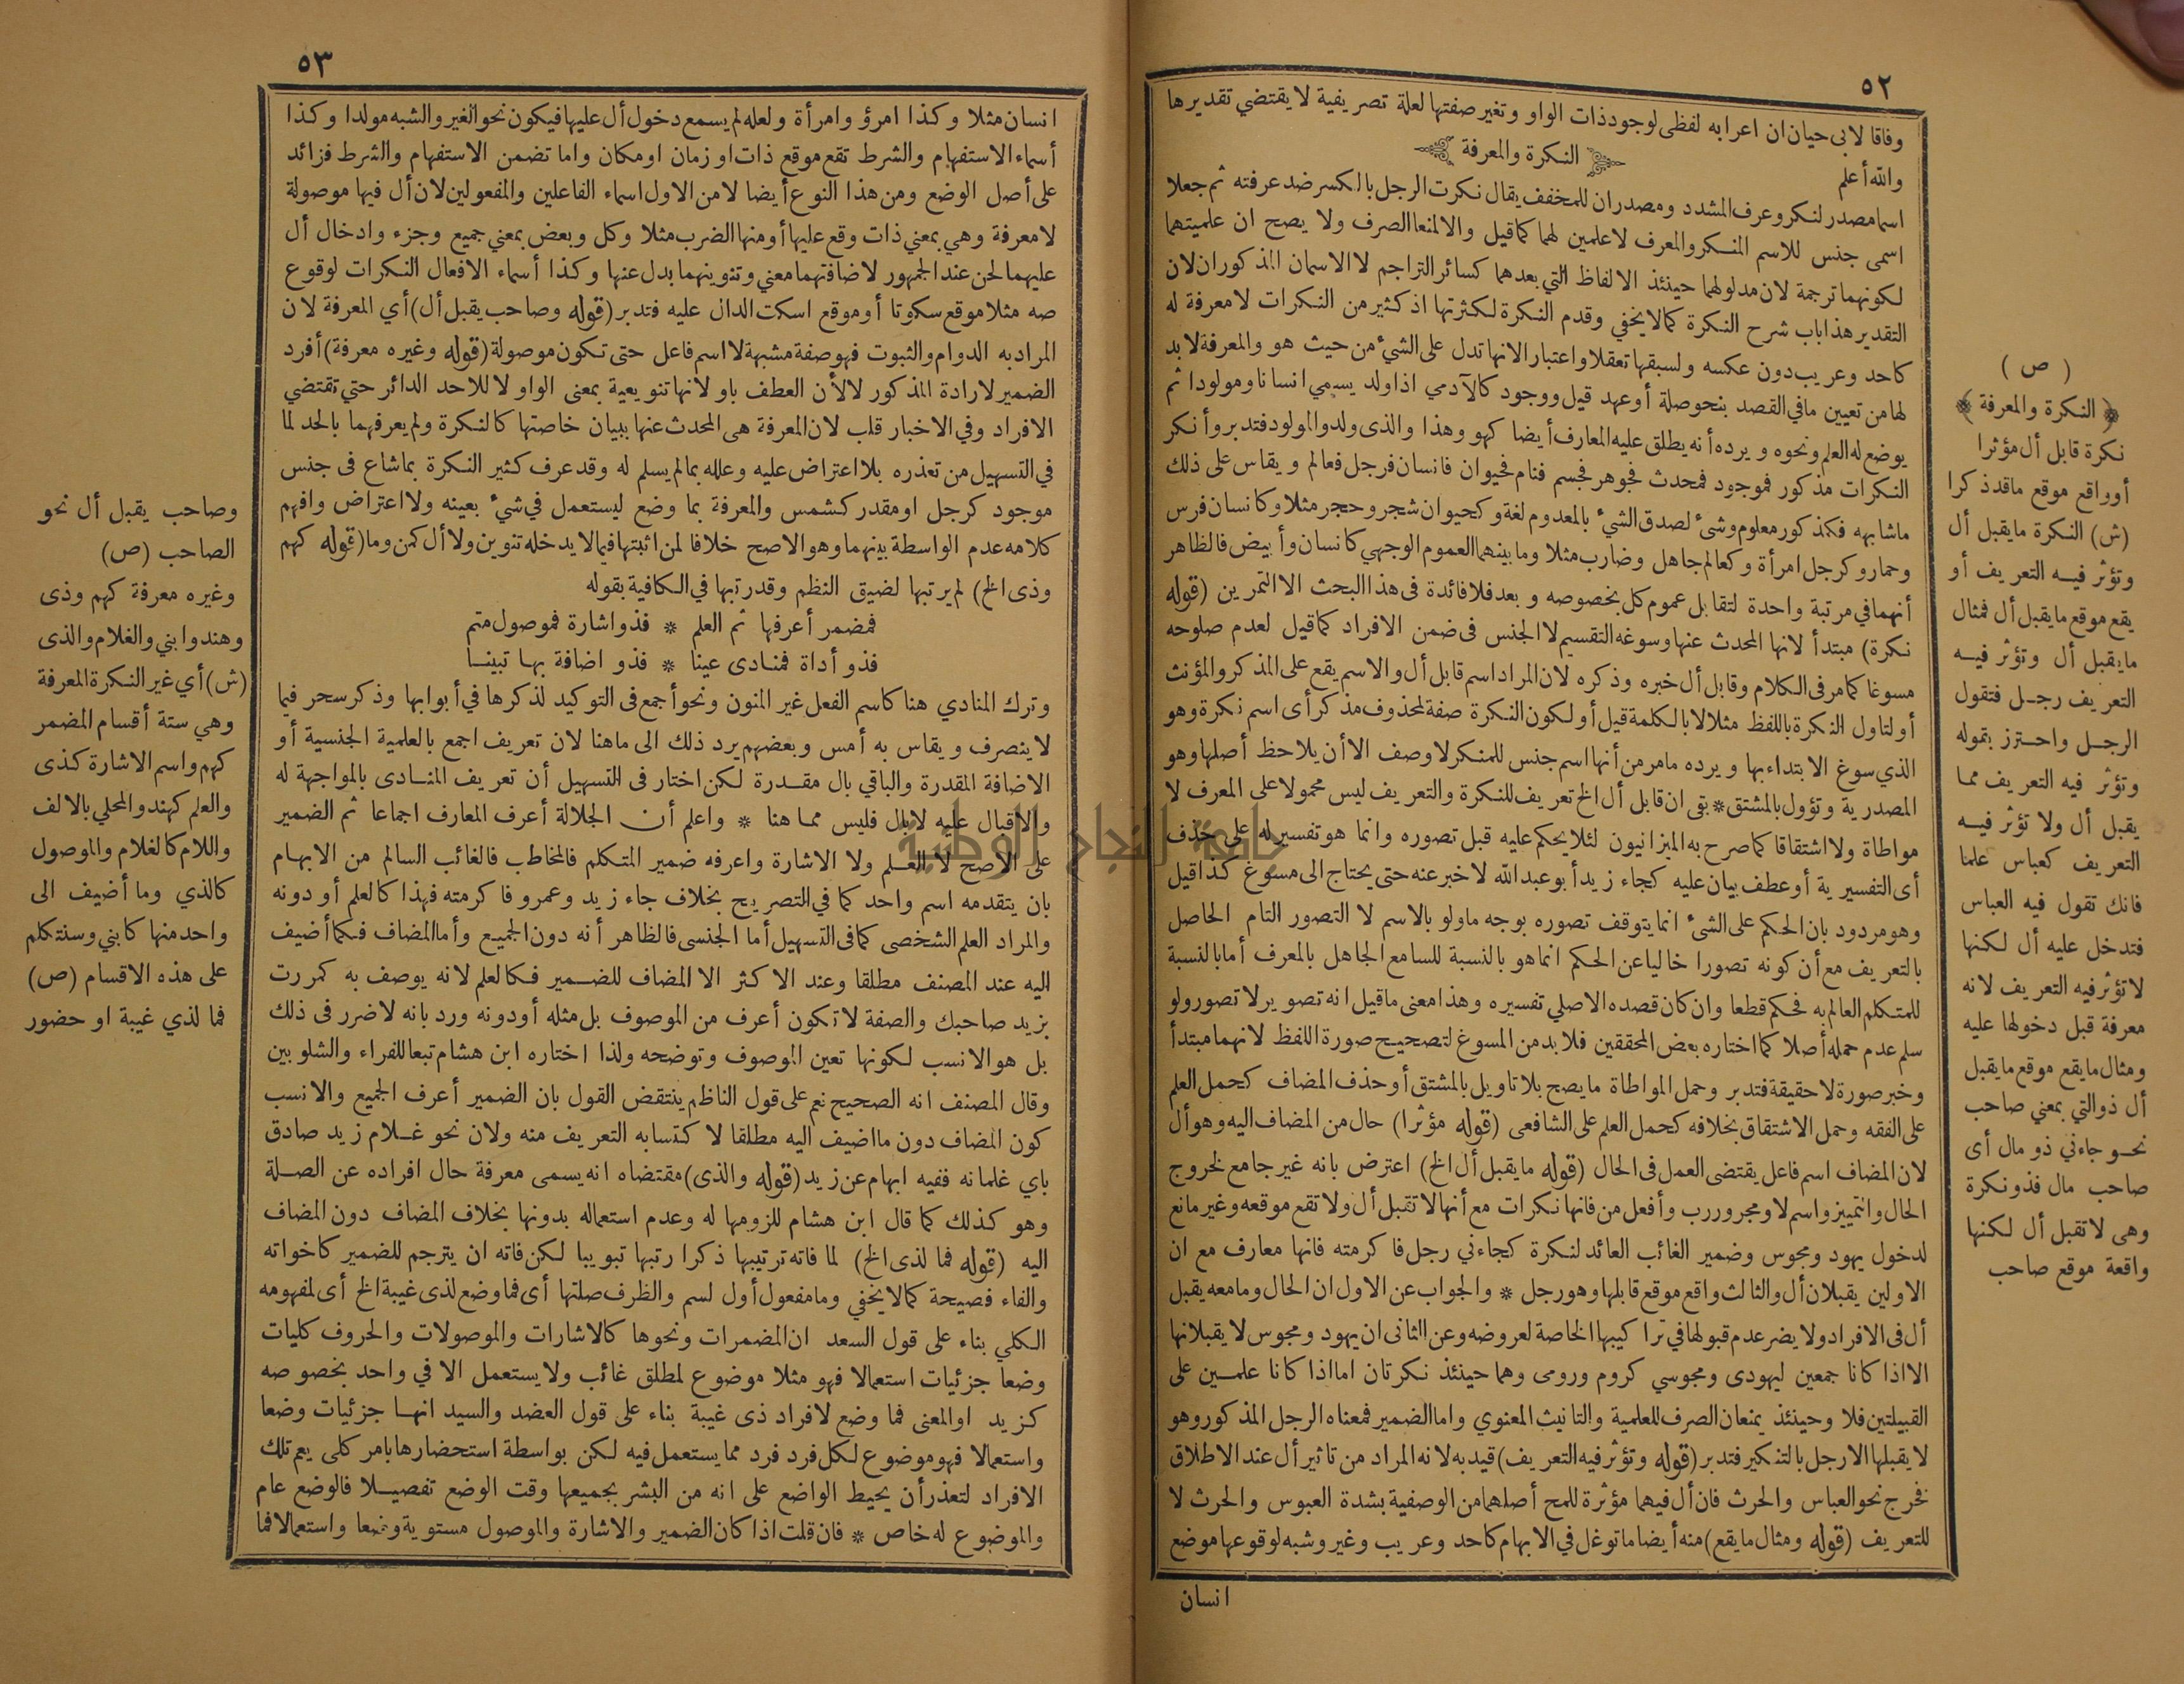 ٥٢
وفاقا لابى حيان ان اعرابه لفظى لوجود ذات الواو وتغير صفتها لعلة تصريفية لا يقتضي تقديرها
والله أعلم
النكرة والمعرفة
اسما مصدر لنكر وعرف المشدد ومصدران للمخفف يقال نكرت الرجل بالكسر ضد عرفته ثم جعلا
اسمى جنس للاسم المنكر والمعرف لا علمين لهما كما قيل والا لمنعا الصرف ولا يصح ان علميتهما
لكونهما ترجمة لان مدلولهما حينئذ الالفاظ التي بعدهما كسائر التراجم لا الاسمان المذكوران لان
التقدير هذا باب شرح النكرة كما لا يخفي وقدم النكرة لكثرتها اذ كثير من النكرات لا معرفة له
كاحد وعريب دون عكسه ولسبقها تعقلا واعتبارا لانها تدل على الشيء من حيث هو والمعرفة لا بد
لها من تعيين ما في القصد بنحو صلة أو عهد قيل ووجود كالآدمي اذا ولد يسمي انسانا ومولودا ثم
يوضع له العلم ونحوه ويرده أنه يطلق عليه المعارف أيضا كهو وهذا والذى ولد والمولود فتدبر وأنكر
النكرات مذكور فموجود فمحدث فجوهر فجسم فنام فحيوان فانسان فرجل فعالم ويقاس على ذلك
ماشابهه فكمذكور معلوم وشىء لصدق الشيء بالمعدوم لغة وكحيوان شجر وحجر مثلا وكانسان فرس
وحمار وكرجل امرأة وكعالم جاهل وضارب مثلا وما بينهما العموم الوجهي كانسان وأبيض فالظاهر
أنهما في مرتبة واحدة لتقابل عموم كل بخصوصه وبعد فلا فائدة فى هذا البحث الا التمرين (قوله
نكرة) مبتدأ لانها المحدث عنها وسوغه التقسيم لا الجنس فى ضمن الافراد كما قيل لعدم صلوحه
مسوغا كما مر فى الكلام وقابل أل خبره وذكره لان المراد اسم قابل أل والاسم يقع على المذكر والمؤنث
أو لتاول النكرة باللفظ مثلا لا بالكلمة قيل أو لكون النكرة صفة لمحذوف مذكر أى اسم نكرة وهو
الذي سوغ الابتداء بها ويرده ما مر من أنها اسم جنس للمنكر لا وصف الا أن يلاحظ أصلها وهو
المصدرية وتؤول بالمشتق * بقى ان قابل أل الخ تعريف للنكرة والتعريف ليس محمولا على المعرف لا
مواطاة ولا اشتقاقا كما صرح به الميزانيون لئلا يحكم عليه قبل تصوره وانما هو تفسير له على حذف
أى التفسيرية أو عطف بيان عليه كجاء زيد أبو عبد الله لا خبر عنه حتى يحتاج الى مسوغ كذا قيل
وهو مردود بان الحكم على الشىء انما يتوقف تصوره بوجه ما ولو بالاسم لا التصور التام الحاصل
بالتعريف مع أن كونه تصورا خاليا عن الحكم انما هو بالنسبة للسامع الجاهل بالمعرف أما بالنسبة
للمتكلم العالم به فحكم قطعا وان كان قصده الاصلي تفسيره وهذا معنى ما قيل انه تصوير لا تصور ولو
سلم عدم حمله أصلا كما اختاره بعض المحققين فلا بد من المسوغ لتصحيح صورة اللفظ لانهما مبتدأ
وخبر صورة لا حقيقة فتدبر وحمل المواطاة ما يصح بلا تاويل بالمشتق أو حذف المضاف كحمل العلم
على الفقه وحمل الاشتقاق بخلافه كحمل العلم على الشافعى (قوله مؤثرا) حال من المضاف اليه وهو أل
لان المضاف اسم فاعل يقتضى العمل فى الحال (قوله ما يقبل أل الخ) اعترض بانه غير جامع لخروج
الحال والتمييز واسم لا ومجرور رب وأفعل من فانها نكرات مع أنها لا تقبل أل ولا تقع موقعه وغير مانع
لدخول يهود ومجوس وضمير الغائب العائد لنكرة كجاءني رجل فاكرمته فانها معارف مع ان
الاولين يقبلان أل والثالث واقع موقع قابلها وهو رجل * والجواب عن الاول ان الحال وما معه يقبل
أل فى الافراد ولا يضر عدم قبولها في تراكيبها الخاصة لعروضه وعن الثانى ان يهود ومجوس لا يقبلانها
الا اذا كانا جمعين ليهودى ومجوسي كروم ورومى وهما حينئذ نكرتان اما اذا كانا علمين على
القبيلتين فلا وحينئذ يمنعان الصرف للعلمية والتانيث المعنوي واما الضمير فمعناه الرجل المذكور وهو
لا يقبلها الا رجل بالتنكير فتدبر (قوله وتؤثر فيه التعريف) قيد به لانه المراد من تاثير أل عند الاطلاق
فخرج نحو العباس والحرث فان أل فيهما مؤثرة للمح أصلهما من الوصفية بشدة العبوس والحرث لا
للتعريف (قوله ومثال ما يقع) منه أيضا ما توغل في الابهام كاحد وعريب وغير وشبه لوقوعها موضع
انسان
(ص)
﴿النكرة والمعرفة﴾
نكرة قابل أل مؤثرا
أو واقع موقع ما قد ذكرا
(ش) النكرة ما يقبل أل
وتؤثر فيه التعريف أو
يقع موقع ما يقبل أل فمثال
ما يقبل أل وتؤثر فيه
التعريف رجل فتقول
الرجل واحترز بقوله
وتؤثر فيه التعريف مما
يقبل أل ولا تؤثر فيه
التعريف كعباس علما
فانك تقول فيه العباس
فتدخل عليه أل لكنها
لا تؤثر فيه التعريف لانه
معرفة قبل دخولها عليه
ومثال ما يقع موقع ما يقبل
أل ذو التي بمعني صاحب
نحو جاءني ذو مال أى
صاحب مال فذو نكرة
وهى لا تقبل أل لكنها
واقعة موقع صاحب
٥٣
انسان مثلا وكذا امرؤ وامرأة ولعله لم يسمع دخول أل عليها فيكون نحو الغير والشبه مولدا وكذا
أسماء الاستفهام والشرط تقع موقع ذات او زمان او مكان واما تضمن الاستفهام والشرط فزائد
على أصل الوضع ومن هذا النوع أيضا لا من الاول اسماء الفاعلين والمفعولين لان أل فيها موصولة
لا معرفة وهي بمعني ذات وقع عليها أو منها الضرب مثلا وكل وبعض بمعني جميع وجزء وادخال أل
عليهما لحن عند الجمهور لاضافتهما معني وتنوينهما بدل عنها وكذا أسماء الافعال النكرات لوقوع
صه مثلا موقع سكوتا أو موقع اسكت الدال عليه فتدبر (قوله وصاحب يقبل أل) أي المعرفة لان
المراد به الدوام والثبوت فهو صفة مشبهة لا اسم فاعل حتى تكون موصولة (قوله وغيره معرفة) أفرد
الضمير لارادة المذكور لا لأن العطف باو لانها تنويعية بمعنى الواو لا للاحد الدائر حتي تقتضي
الافراد وفي الاخبار قلب لان المعرفة هى المحدث عنها ببيان خاصتها كالنكرة ولم يعرفهما بالحد لما
في التسهيل من تعذره بلا اعتراض عليه وعلله بما لم يسلم له وقد عرف كثير النكرة بما شاع فى جنس
موجود كرجل او مقدر كشمس والمعرفة بما وضع ليستعمل في شيء بعينه ولا اعتراض وافهم
كلامه عدم الواسطة بينهما وهو الاصح خلافا لمن اثبتها فيما لا يدخله تنوين ولا أل كمن وما (قوله كهم
وذى الخ) لم يرتبها لضيق النظم وقد رتبها في الكافية بقوله
فمضمر أعرفها ثم العلم * فذو اشارة فموصول متم
فذو أداة فمنادى عينا * فذو اضافة بها تبينا
وترك المنادي هنا كاسم الفعل غير المنون ونحو أجمع فى التوكيد لذكرها في أبوابها وذكر سحر فيما
لا ينصرف ويقاس به أمس وبعضهم يرد ذلك الى ما هنا لان تعريف اجمع بالعلمية الجنسية أو
الاضافة المقدرة والباقي بال مقدرة لكن اختار فى التسهيل أن تعريف المنادى بالمواجهة له
والاقبال عليه لا بال فليس مما هنا * واعلم أن الجلالة أعرف المعارف اجماعا ثم الضمير
على الاصح لا العلم ولا الاشارة واعرفه ضمير المتكلم فالمخاطب فالغائب السالم من الابهام
بان يتقدمه اسم واحد كما في التصريح بخلاف جاء زيد وعمرو فاكرمته فهذا كالعلم أو دونه
والمراد العلم الشخصى كما فى التسهيل أما الجنسى فالظاهر أنه دون الجميع وأما المضاف فكما أضيف
اليه عند المصنف مطلقا وعند الاكثر الا المضاف للضمير فكالعلم لانه يوصف به كمررت
بزيد صاحبك والصفة لا تكون أعرف من الموصوف بل مثله أو دونه ورد بانه لا ضرر فى ذلك
بل هو الانسب لكونها تعين الموصوف وتوضحه ولذا اختاره ابن هشام تبعا للفراء والشلوبين
وقال المصنف انه الصحيح نعم على قول الناظم ينتقض القول بان الضمير أعرف الجميع والانسب
كون المضاف دون ما اضيف اليه مطلقا لا كتسابه التعريف منه ولان نحو غلام زيد صادق
باي غلمانه ففيه ابهام عن زيد (قوله والذى) مقتضاه انه يسمى معرفة حال افراده عن الصلة
وهو كذلك كما قال ابن هشام للزومها له وعدم استعماله بدونها بخلاف المضاف دون المضاف
اليه (قوله فما لذى الخ) لما فاته ترتيبها ذكرا رتبها تبويبا لكن فاته ان يترجم للضمير كاخواته
والفاء فصيحة كما لا يخفي وما مفعول أول لسم والظرف صلتها أى فما وضع لذى غيبة الخ أى لمفهومه
الكلي بناء على قول السعد ان المضمرات ونحوها كالاشارات والموصولات والحروف كليات
وضعا جزئيات استعمالا فهو مثلا موضوع لمطلق غائب ولا يستعمل الا في واحد بخصوصه
كزيد او المعنى فما وضع لافراد ذى غيبة بناء على قول العضد والسيد انها جزئيات وضعا
واستعمالا فهو موضوع لكل فرد فرد مما يستعمل فيه لكن بواسطة استحضارها بامر كلى يعم تلك
الافراد لتعذر أن يحيط الواضع على انه من البشر بجميعها وقت الوضع تفصيلا فالوضع عام
والموضوع له خاص * فان قلت اذا كان الضمير والاشارة والموصول مستوية وضعا واستعمالا فما
وصاحب يقبل أل نحو
الصاحب (ص)
وغيره معرفة كهم وذى
وهند وابني والغلام والذى
(ش) أي غير النكرة المعرفة
وهي ستة أقسام المضمر
كهم واسم الاشارة كذى
والعلم كهند والمحلي بالالف
واللام كالغلام والموصول
كالذي وما أضيف الى
واحد منها كابني وسنتكلم
على هذه الاقسام (ص)
فما لذي غيبة او حضور
جامعة النجاح الوطنية